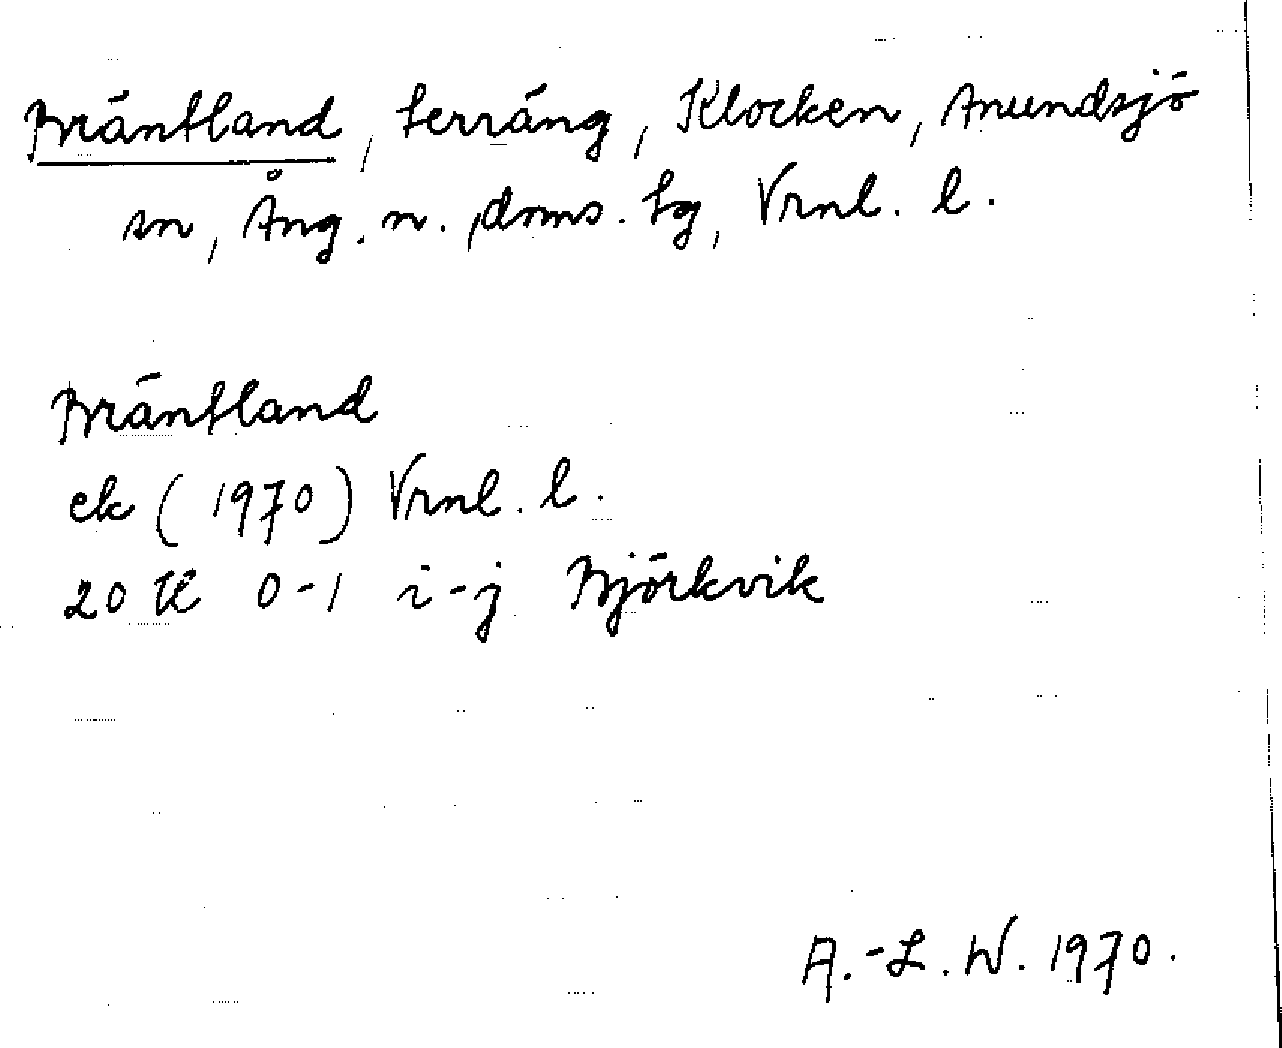 Bräntland, terräng, Klocken, Anundsjö
sn, Ång. n. doms. tg, Vrnl. l.
Bräntland
ek (1970) Vrnl. l.
20 K 0-1 i-j Björkvik
A.-L. W. 1970.